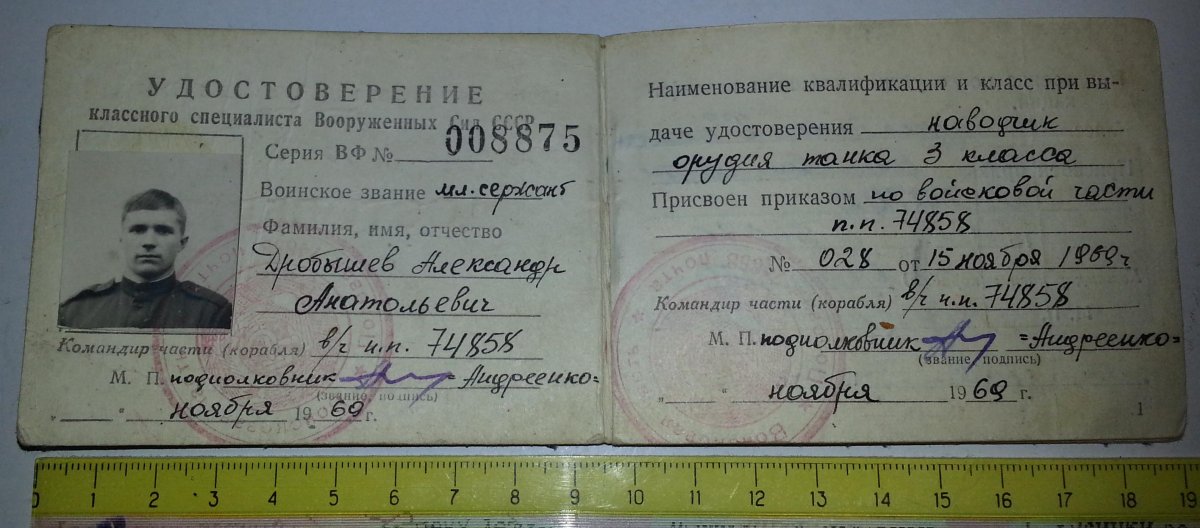 УДОСТОВЕРЕНИЕ
классного специалиста Вооруженных Сил СССР
Серия ВФ № 008875
Воинское звание мл. сержант
Фамилия, имя, отчество
Дробышев Александр
Анатольевич
Командир части (корабля) в/ч п.п. 74858
М. П. подполковник =Андреенко=
(звание, подпись)
„ “ ноября 1969 г.
Наименование квалификации и класс при вы-
даче удостоверения наводчик
орудия танка 3 класса
Присвоен приказом по войсковой части
п.п. 74858
№ 028 от 15 ноября 1969 г
Командир части (корабля) в/ч п.п. 74858
М. П. подполковник =Андреенко=
(звание, подпись)
„ “ ноября 1969 г.
1
0 1 2 3 4 5 6 7 8 9 10 11 12 13 14 15 16 17 18 19